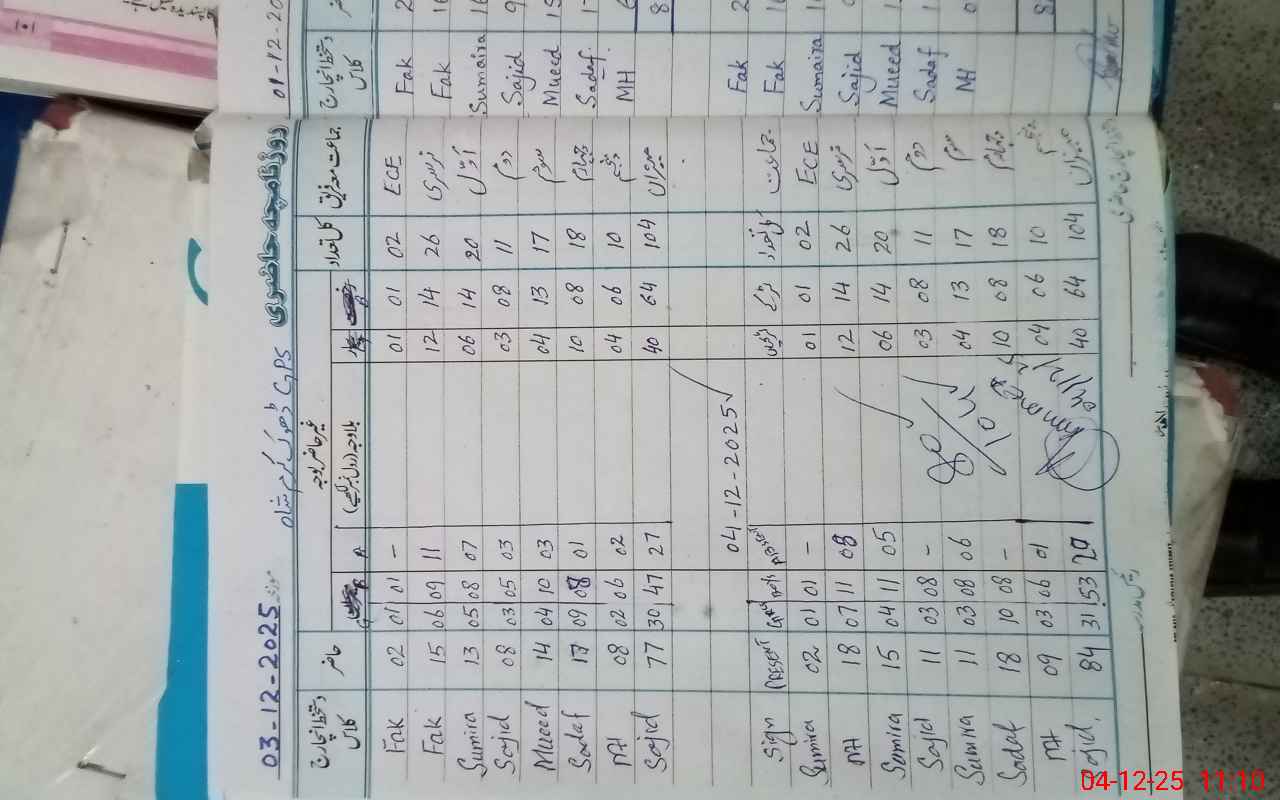 روزنامچہ حاضری
GPS ڈھوک کرم شاہ
03-12-2025
جماعت کل تعداد غیر حاضر حاضر
ECE 02 01 01 - 01 01 02 Fak
نرسری 26 14 12 11 09 06 15 Fak
اوّل 20 14 06 07 08 05 13 Sumira
دوم 11 08 03 03 05 03 08 Sajid
سوم 17 13 04 03 10 04 14 Mueed
چہارم 18 08 10 01 08 09 17 Sadaf
پنجم 10 06 04 02 06 02 08 MH
میزان 104 64 40 27 47 30 77 Sajid
04-12-2025
جماعت کل تعداد لڑکے لڑکیاں Absent Boys Girls PRESENT Sign
ECE 02 01 01 - 01 01 02 Sumira
نرسری 26 14 12 08 11 07 18 MH
اوّل 20 14 06 05 11 04 15 Sumira
دوم 11 08 03 - 08 03 11 Sajid
سوم 17 13 04 06 08 03 11 Sumira
چہارم 18 08 10 - 08 10 18 Sadaf
پنجم 10 06 04 01 06 03 09 MH
میزان 104 64 40 20 53 31 84 Sajid
01-12-20
Fak
Fak
Sumaira
Sajid
Mueed
Sadaf
MH
Fak
Fak
Sumaira
Sajid
Mueed
Sadaf
MH
04-12-25 11:10